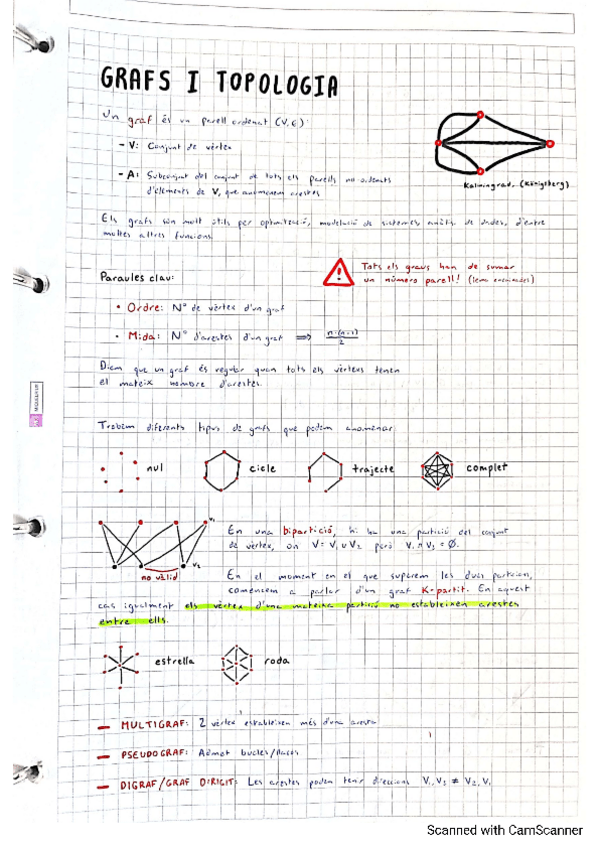 GRAFS I TOPOLOGIA
Un graf és un parell ordenat (V,E):
- V: Conjunt de vèrtex
- A: Subconjunt del conjunt de tots els parells no ordenats
d'elements de V, que anomenem arestes
Kaliningrad, (Königsberg)
Els grafs són molt útils per optimització, modelació de sistemes, anàlisi de dades, d'entre
moltes altres funcions.
Tots els graus han de sumar
un número parell! (lema encaixades)
Paraules clau:
• Ordre: Nº de vèrtex d'un graf
• Mida: Nº d'arestes d'un graf ⟹ n·(n-1)/2
Diem que un graf és regular quan tots els vèrtexs tenen
el mateix nombre d'arestes.
MIQUELRIUS
Trobem diferents tipus de grafs que podem anomenar:
nul cicle trajecte complet
V₁
En una bipartició, hi ha una partició del conjunt
de vèrtex, on V = V₁ ∪ V₂ però V₁ ∩ V₂ = Ø.
V₂
no vàlid
En el moment en el que superem les dues particions,
comencem a parlar d'un graf K-partit. En aquest
cas igualment els vèrtex d'una mateixa partició no estableixen arestes
entre ells.
estrella roda
- MULTIGRAF: 2 vèrtex estableixen més d'una aresta
- PSEUDOGRAF: Admet bucles/llaços
- DIGRAF/GRAF DIRIGIT: Les arestes poden tenir direccions V₁V₂ ≠ V₂V₁
Scanned with CamScanner